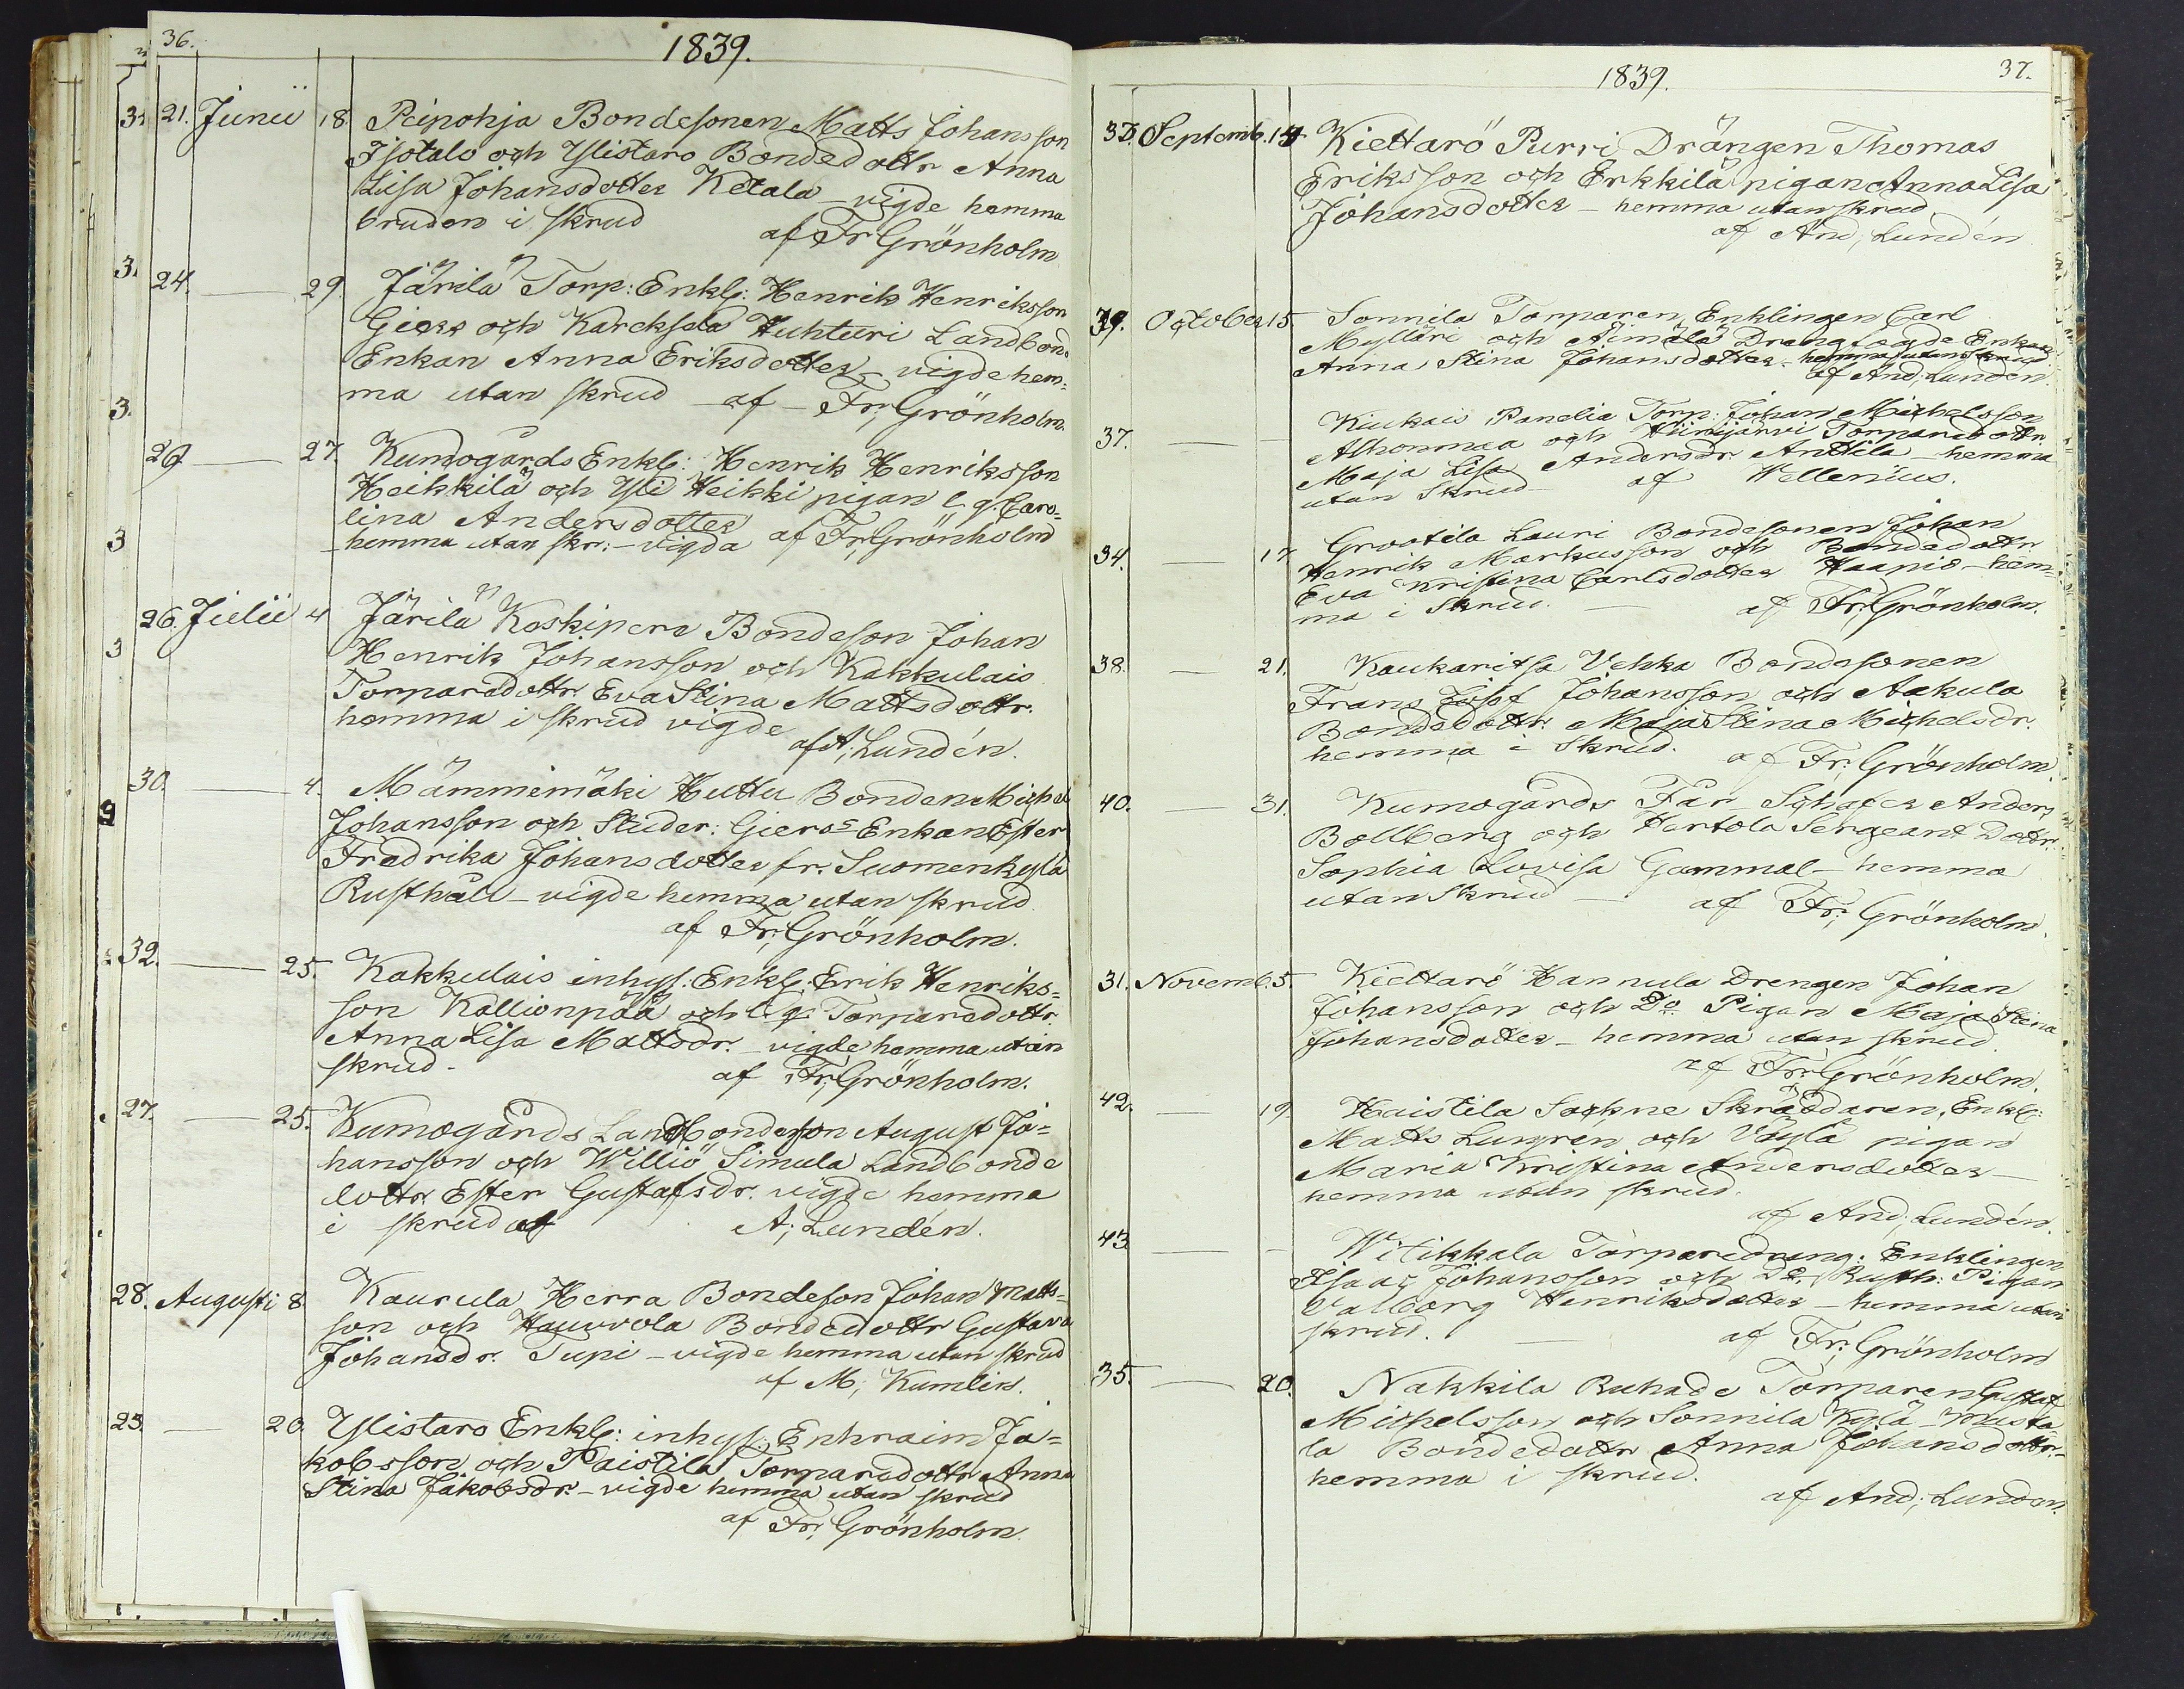 36.
1839.
21. Junii 18. Peipohja Bondesonen Matts Johansson
Isotalo och Ylistaro Bondedottr Anna
Lisa Johansdotter Ketala - vigde hemma
bruden i skrud af Fr. Grönholm
24. — 29. Järilä Torp: Enkl: Henrik Henriksson
Giers och Karcksela Huhturi Landbond
Enkan Anna Eriksdotter - vigde hem=
ma utan skrud - af - Fr; Grönholm.
29 — 27. Kumogårds Enkl: Henrik Henriksson
Heikkilä och Yli Heikki pigan l. q. Caro=
lina Andersdotter
- hemma utan skr: - vigda af Fr; Grönholm
26. Julii 4 Järilä Koskipere Bondeson Johan
Henrik Johansson och Kakkulais
Torparedottr. Eva Stina Mattsdottr.
hemma i skrud vigde
af A; Lundén.
30. — 4. Mämmimäki Huttu Bonden Michel
Johansson och Studer: Gierss Enkan Ester
Fredrika Johansdotter fr. Suomenkylä
Rusthåll - vigde hemma utan skrud
af Fr; Grönholm.
32. — 25. Kakkulais inhys: Enkl: Erik Henriks=
son Kallionpää och l. q. Torparedottr.
Anna Lisa Mattsdr. - vigde hemma utan
skrud - af Fr; Grönholm.
27. — 25. Kumogårds Landbondeson August Jo=
hansson och Williö Simula Landbonde
dottr. Ester Gustafsdr. vigde hemma
i skrud af A; Lundén.
28. Augusti 8. Kaurula Herra Bondeson Johan Matts=
son och Hauvola Bondedottr Gustava
Johansdr. Tupi - vigde hemma utan skrud
af M; Kumlin.
23. — 20. Ylistaro Enkl: inhys: Ephraim Ja=
kobsson och Paistila Torparedottr Anna
Stina Jakobsdr. - vigde hemma utan skrud
af Fr; Grönholm.
37.
1839.
33. Septemb. 14 Kiettarö Purri Drängen Thomas
Eriksson och Erkkilä pigan Anna Lisa
Johansdotter - hemma utan skrud
af And; Lundén
39. October 15. Sonnila Torparen Enklingen Carl
Mylläri och Äimälä Drengfogde Enkan
Anna Stina Johansdotter - hemma utan skrud
af And; Lundén.
37. — Kiukais Panelia Torp: Johan Michelsson
Alhonmaa och Hiirijärvi Torparedottr.
Maja Lisa Andersdr Anttila - hemma
utan skrud - af Wellenius.
34. — 17. Grootila Lauri Bondesonen Johan
Henrik Markusson och Bondedottr
Eva Kristina Carlsdotter Haapio - hem=
ma i skrud. — af Fr; Grönholm.
38. — 21. Kaukaritsa Vehka Bondesonen
Frans Johansson och Aakula
Bondedottr. Maja Stina Michelsdr.
hemma i skrud. af Fr; Grönholm.
40. — 31. Kumogårds Får Schäfer Anders
Bollberg och Hertola Sergeant Dottr.
Sophia Lovisa Gammal - hemma
utan skrud — af Fr; Grönholm.
31. Novemb. 5. Kiettarö Hannula Drengen Johan
Johansson och Do Pigan Maja Stina
Johansdotter - hemma utan skrud.
af Fr; Grönholm.
42. — 19. Haistila Sockne Skräddaren, Enkl:
Matts Lungren och Våglä pigan
Maria Kristina Andersdotter -
hemma utan skrud.
af And; Lundén.
43. — - Witikkala Torparedräng: Enklingen
Isaac Johansson och Do. Rusth: Pigan
Valborg Henriksdotter - hemma utan
skrud. — af Fr; Grönholm
35. — 20. Nakkila Ruhade Torparen Gustaf
Michelsson och Sonnila Kylä - Musta
la Bondedottr Anna Johansdottr -
hemma i skrud.
af And; Lundén.